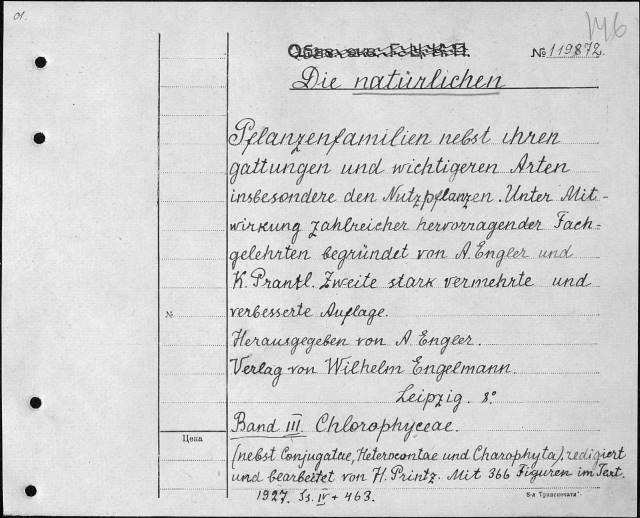 01.
146
№ 119872.
Die natürlichen
Pflanzenfamilien nebst ihren
gattungen und wichtigeren Arten
insbesondere den Nutzpflanzen. Unter Mit-
wirkung zahlreicher hervorragender Fach-
gelehrten begründet von A. Engler und
K. Prantl. Zweite stark vermehrte und
№
verbesserte Auflage.
Herausgegeben von A. Engler.
Verlag von Wilhelm Engelmann.
Leipzig. 8°
Band III. Chlorophyceae.
Цена
(nebst Conjugatae, Heterocontae und Charophyta), redigiert
und bearbeitet von H. Printz. Mit 366 Figuren im Text.
1927. Ss. IV + 463.